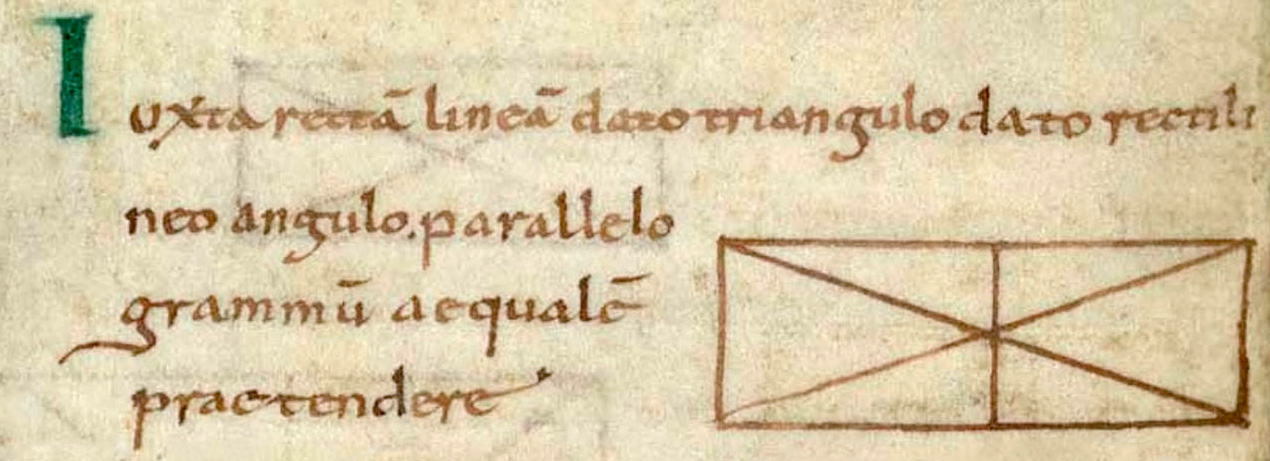 Iuxta rectā lineā dato triangulo dato rectili
neo angulo. parallelo
grammū aequalē
praetendere